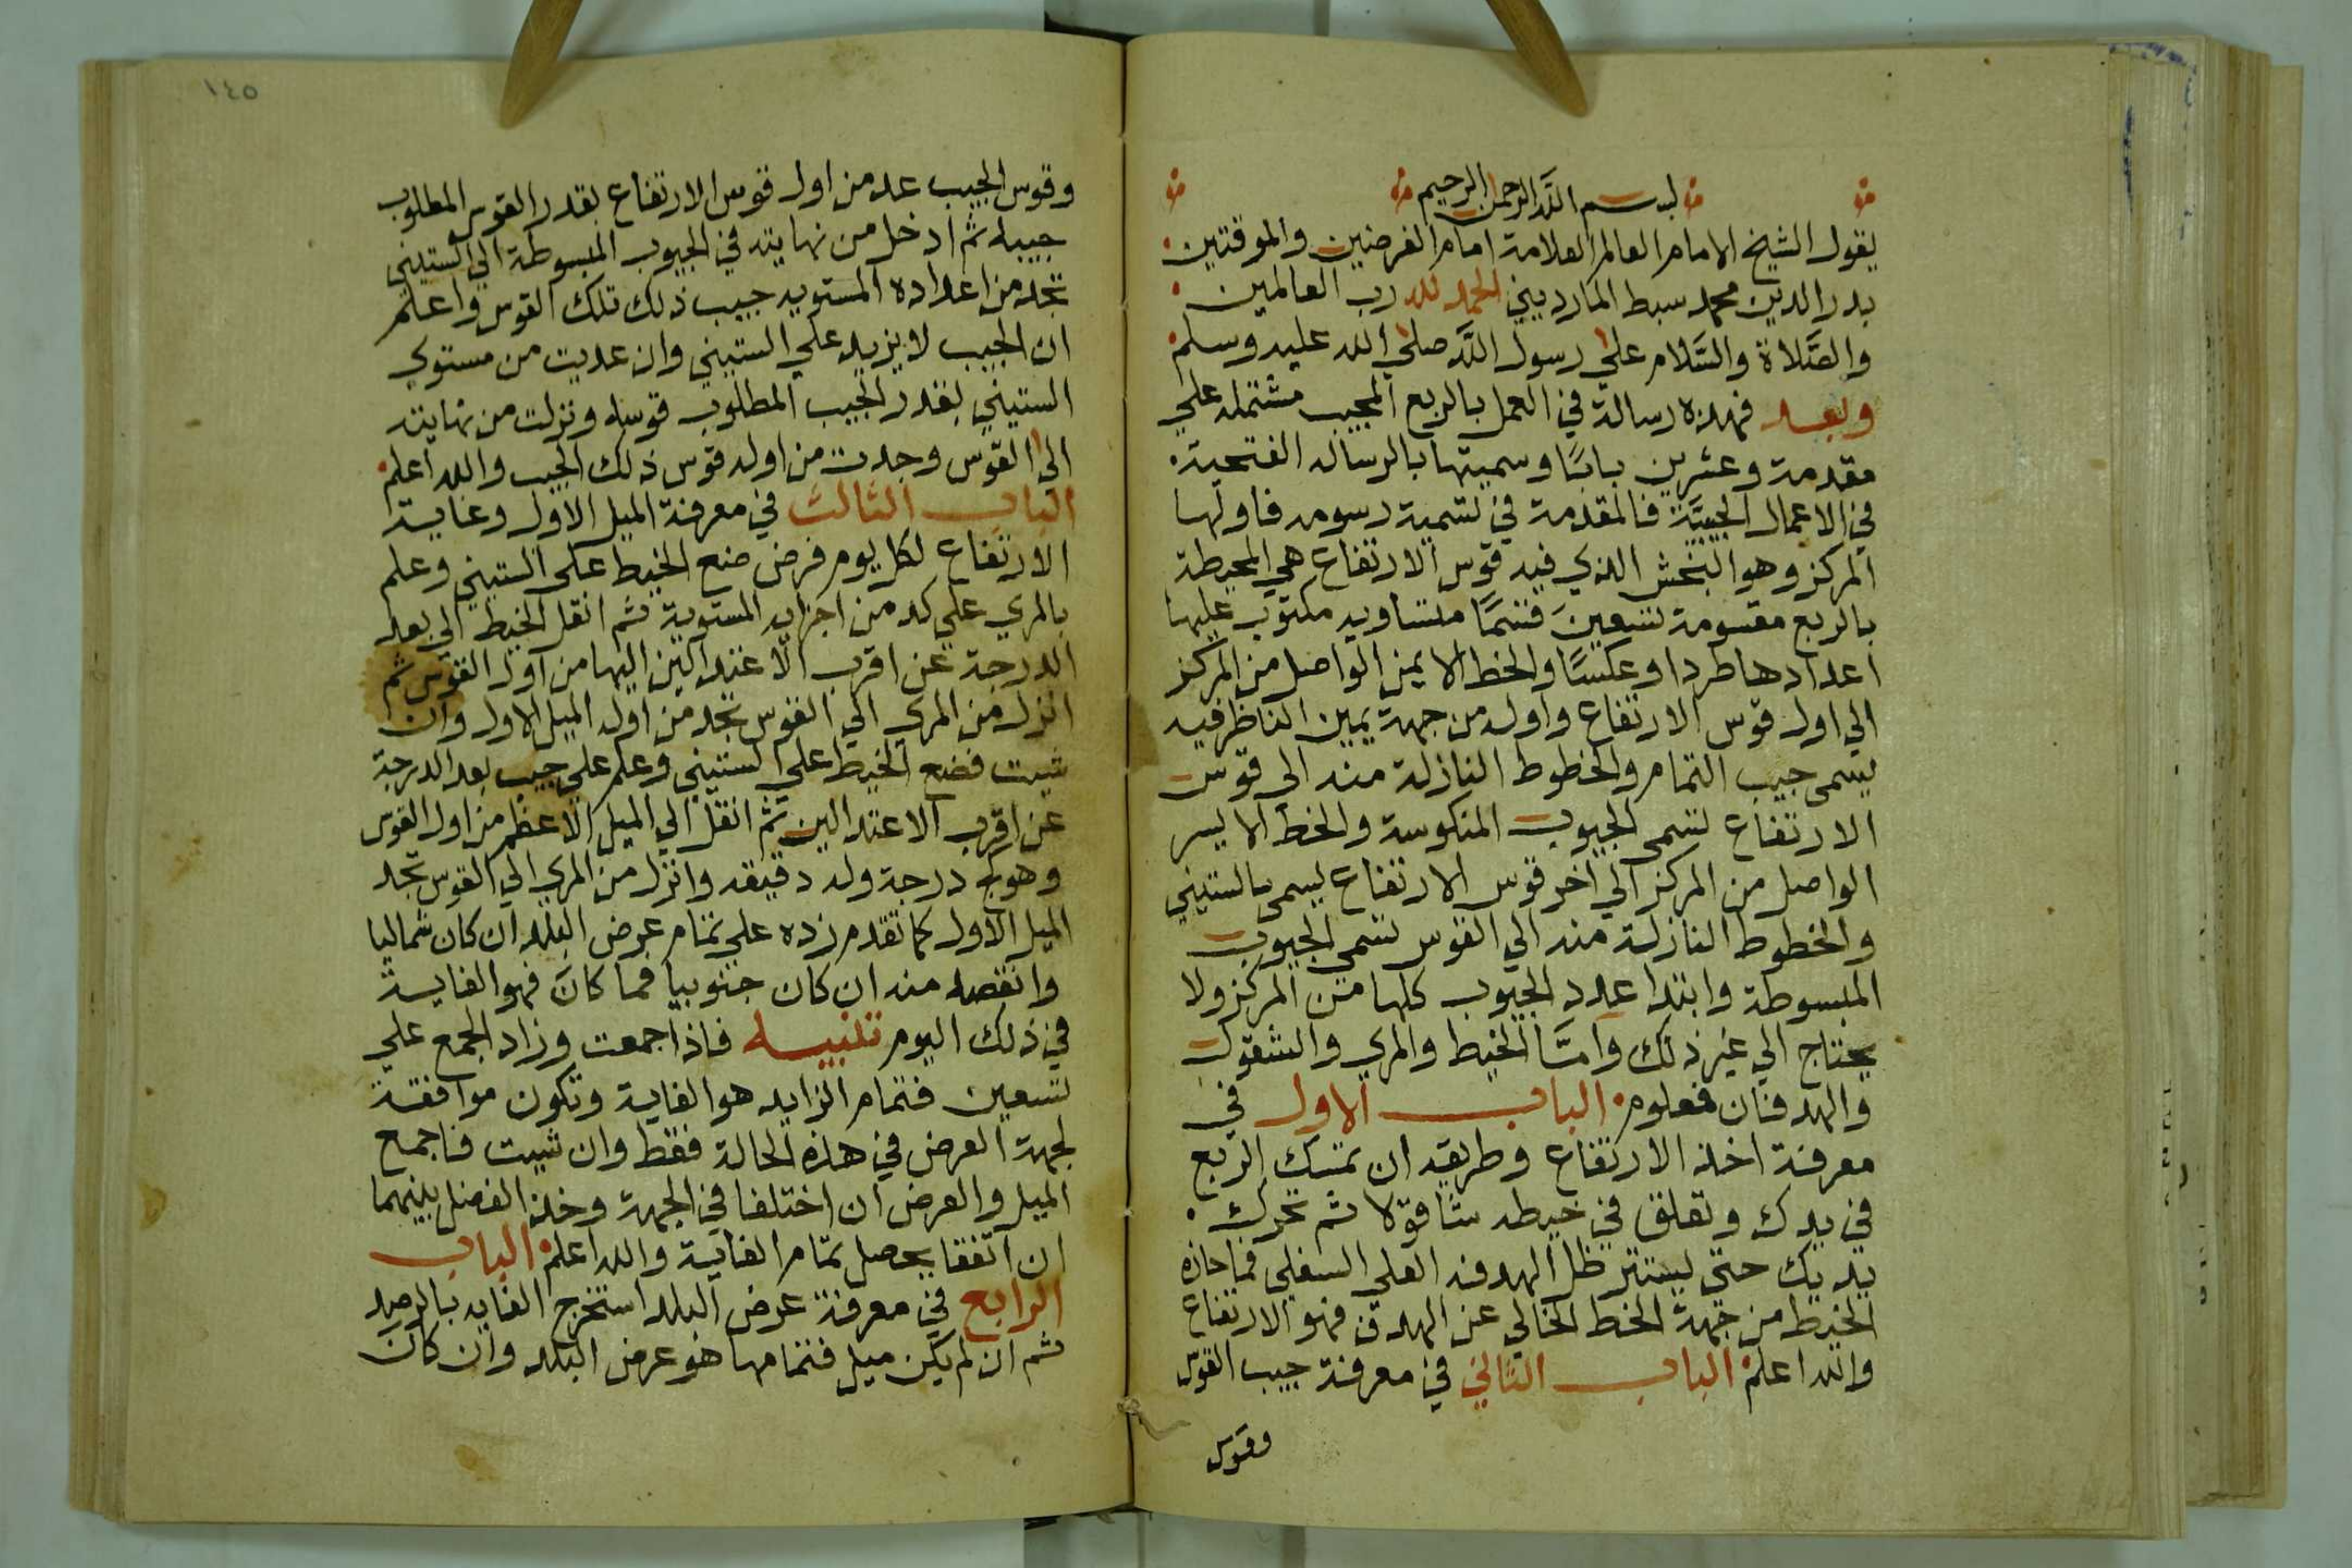 بسم الله الرحمن الرحيم
يقول الشيخ الامام العالم العلامة امام الفرضيين والموقتين
بدر الدين محمد سبط المارديني الحمد لله رب العالمين
والصَّلاة والسَّلام على رسول اللَّه صلي الله عليه وسلم
وبعد فهذه رسالة في العمل بالربع المجيب مشتملة علي
مقدمة وعشرين بابًا وسميتها بالرساله الفتحية
في الاعمال الجيبيَّة فالمقدمة في تسمية رسومه فاولها
المركز وهو البخش الذي فيه قوس الارتفاع هي المحيطة
بالربع مقسومة تسعين قسمًا متساويه مكتوب عليها
اعدادها طردا وعكسًا والخط الايمن الواصل من المركز
الي اول قوس الارتفاع واوله من جهة يمين الناظر فيه
يسمى جيب التمام والخطوط النازلة منه الى قوس
الارتفاع تسمى الجيوب المنكوسة والخط الايسر
الواصل من المركز الي اخر قوس الارتفاع يسمى بالستيني
والخطوط النازلة منه الي القوس تسمى الجيوب
المبسوطة وابتدا عدد الجيوب كلها من المركز ولا
يحتاج الي غير ذلك وامَّا الخيط والمري والشقول
والهدفتان فعلوم الباب الاول في
معرفة اخذ الارتفاع وطريقه ان تمسك الربع
في يدك وتعلق في خيطه شاقولا ثم تحرك
يديك حتى يستتر ظل الهدفه العلي السفلي فما حازه
الخيط من جهة الخط الخالي عن الهدف فهو الارتفاع
والله اعلم الباب الثاني في معرفة جيب القوس
وقوس
١٤٥
وقوس الجيب عد من اول قوس الارتفاع بقدر القوس المطلوب
جيبه ثم ادخل من نهايته في الجيوب المبسوطة الي الستيني
تجد من اعداده المستويه جيب ذلك تلك القوس واعلم
ان الجيب لا يزيد علي الستيني وان عديت من مستوي
الستيني بقدر الجيب المطلوب قوسه ونزلت من نهايته
الى القوس وجدت من اوله قوس ذلك الجيب والله اعلم
الباب الثالث في معرفة الميل الاول وغاية
الارتفاع لكل يوم فرض ضع الخيط على الستيني وعلم
بالمري علي كد من اجزايه المستوية ثم انقل الخيط الى بعد
الدرجة عن اقرب الاعتدالين اليها من اول القوس ثم
انزل من المري الي القوس تجد من اوله الميل الاول وان
شيت فضع الخيط على الستيني وعلم علي جيب بعد الدرجة
عن اقرب الاعتدالين ثم انقل الي الميل الاعظم من اول القوس
وهو كج درجة وله دقيقه وانزل من المري الي القوس تجد
الميل الاول كما تقدم زده علي تمام عرض البلد ان كان شماليا
وانقصه منه ان كان جنوبيا فما كان فهو الغاية
في ذلك اليوم تنبيه فاذا جمعت وزاد الجمع علي
تسعين فتمام الزايد هو الغاية وتكون موافقة
لجهة العرض في هذه الحالة فقط وان شيت فاجمع
الميل والعرض ان اختلفا في الجهة وخذ الفضل بينهما
ان اتفقا يحصل تمام الغاية والله اعلم الباب
الرابع في معرفة عرض البلد استخرج الغايه بالرصد
ثم ان لم يكن ميل فتمامها هو عرض البلد وان كان